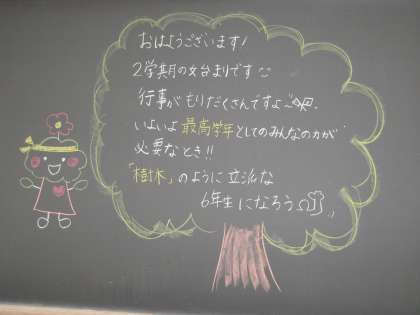 おはようございます!
2学期の始まりです
行事がもりだくさんですよ〜
いよいよ最高学年としてのみんなの力が
必要なとき!!
「樹木」のように立派な
6年生になろう